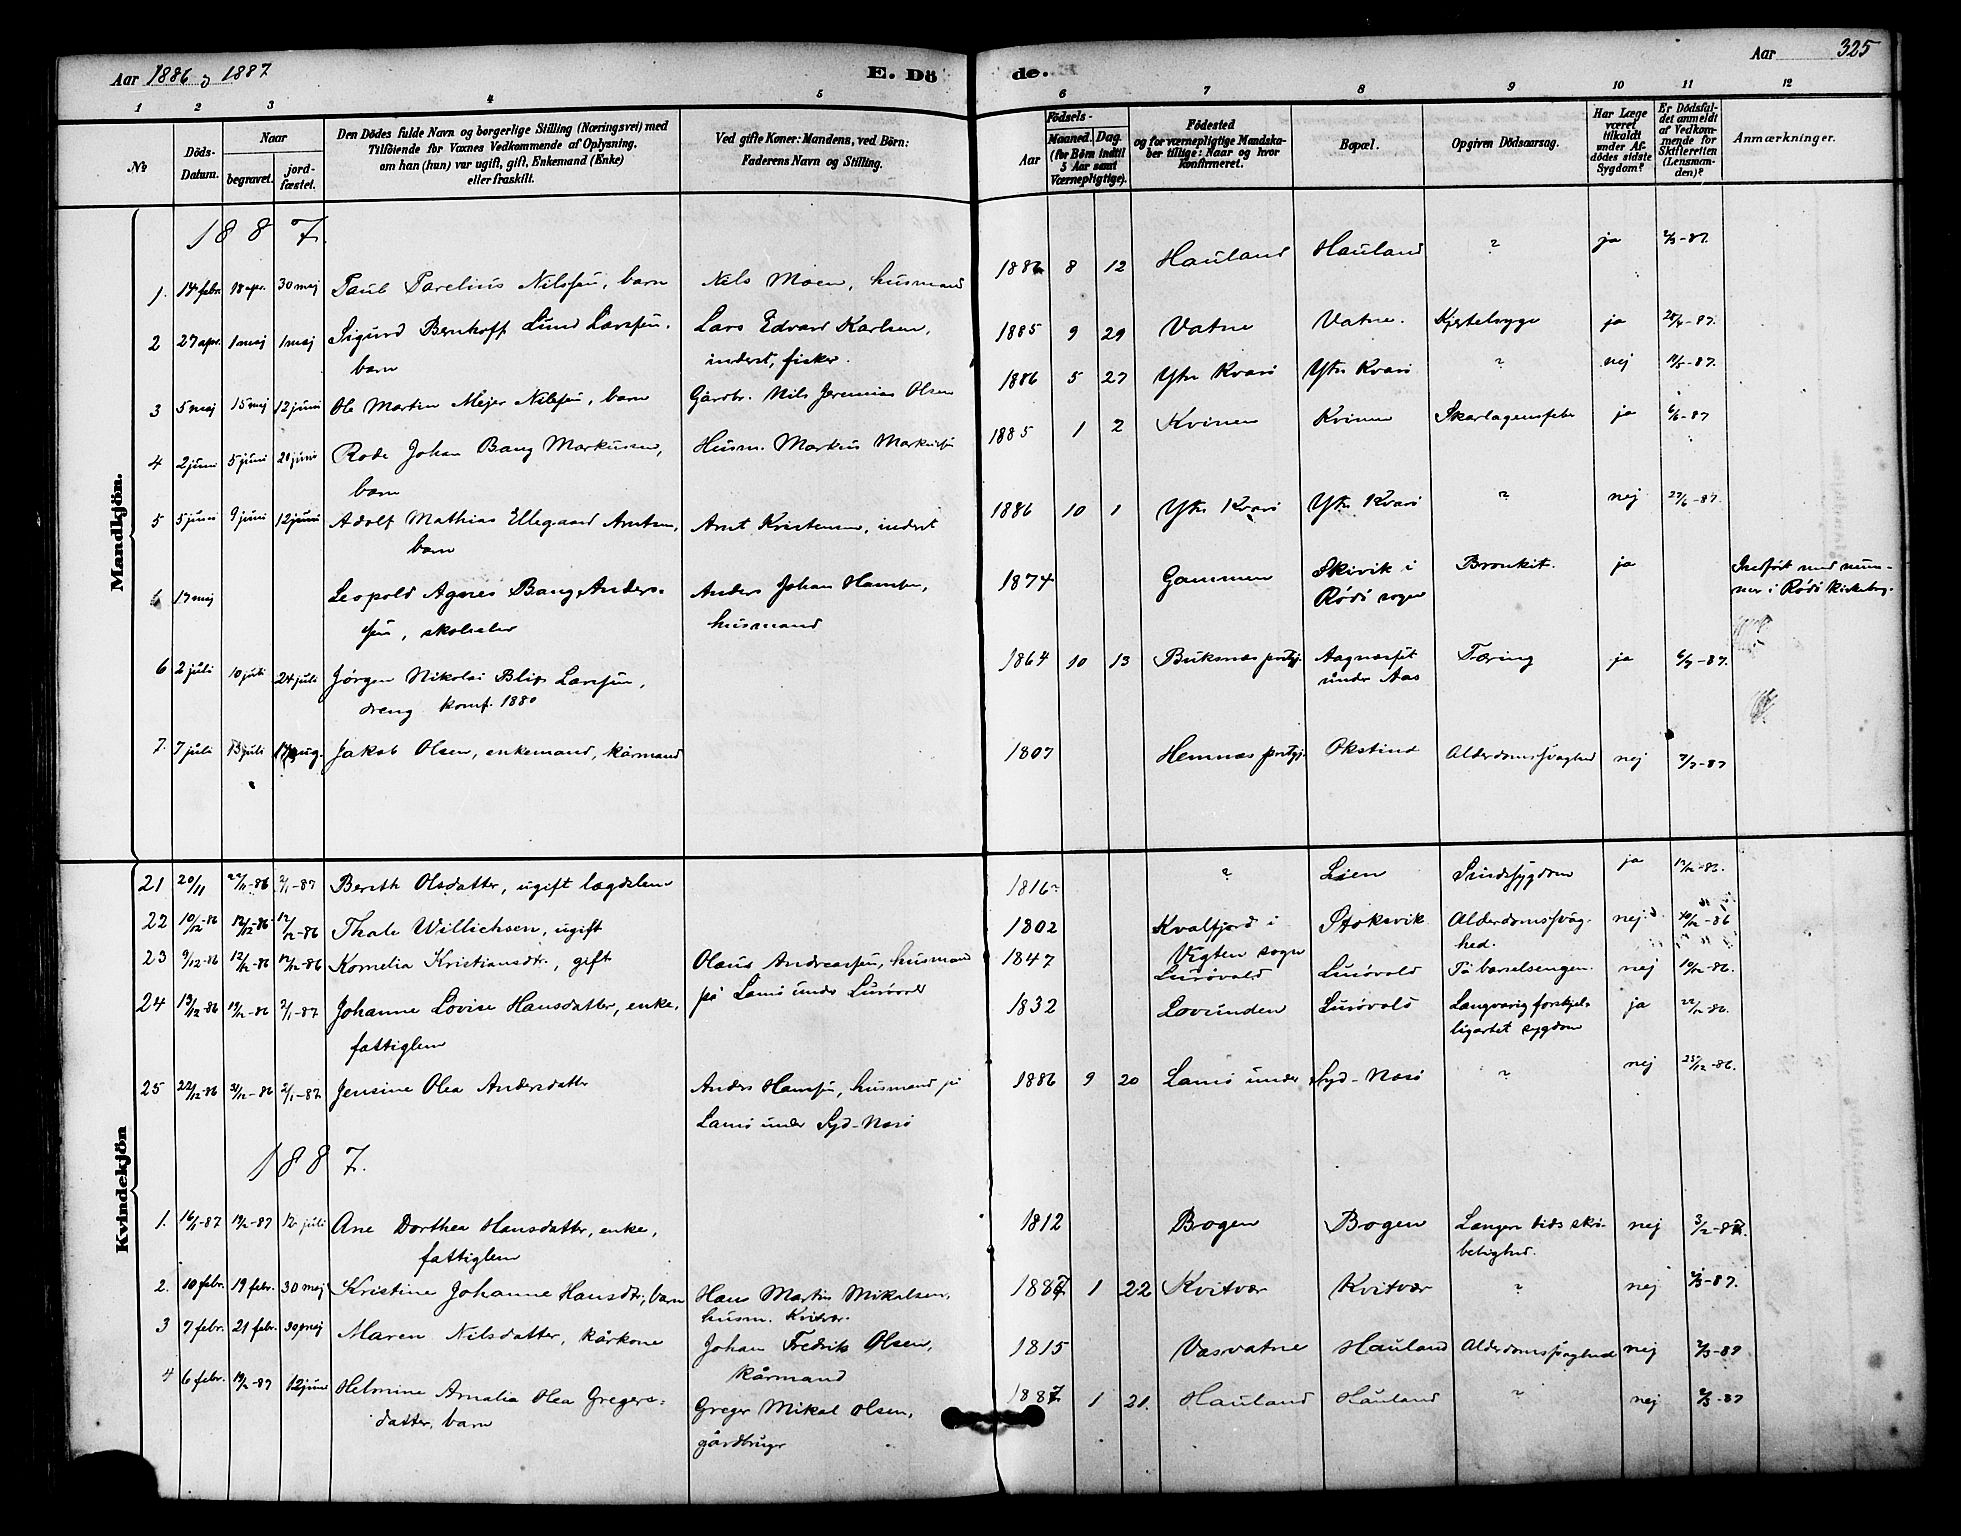 Aar 1886 & 1887
E. Dö
de.
Aar 325
1 2 3 4 5 6 7 8 9 10 11 12
No
Döds-Datum.
Naar
begravet.
jord-fæstet.
Den Dödes fulde Navn og borgerlige Stilling (Næringsvei) med
Tilföiende for Voxnes Vedkommende af Oplysning,
om han (hun) var ugift, gift, Enkemand (Enke)
eller fraskilt.
Ved gifte Koner: Mandens, ved Börn:
Faderens Navn og Stilling.
Födsels-
Aar
Maaned. Dag.
(for Börn indtil
5 Aar samt
Værnepligtige).
Födested
og for værnepligtige Mandska-
ber tillige: Naar og hvor
konfirmeret.
Bopæl.
Opgiven Dödsaarsag.
Har Læge
været
tilkaldt
under Af-
dödes sidste
Sygdom?
Er Dödsfal-
det anmeldt
af Vedkom-
mende for
Skifteretten
(Lensman-
den)?
Anmærkninger.
Mandkjön.
1887.
1. 14 febr. 18 apr. 30 maj Paul Parelius Nilssen, barn Nils Moen, husmand 1886 8 12 Hauland Hauland ? ja 2/3-87.
2 27 apr. 1 maj 1 maj Sigurd Bernhoff Lund Larssen, Lars Edvard Karlsen, 1885 9 29 Vatne Vatne. Kjertelsyge ja 28/4-87.
barn inderst, fisker.
3 5 maj 15 maj 12 juni Ole Martin Mejer Nilssen, barn Gårdbr. Nils Jeremias Olsen 1886 5 27 Ytr Kvarö Ytr Kvarö ? nej 14/5-87.
4 2 juni 5 juni 20 juni Rode Johan Bang Markussen, Husm. Markus Markussen 1885 1 2 Kvinen Kvinen Skarlagensfeber ja 6/6-87
barn
5 5 juni 9 juni 12 juni Adolf Mathias Ellegaard Arntsen, Arnt Kristensen, inderst 1886 10 1 Ytr Kvarö Ytr Kvarö ? nej 27/6-87.
barn
6 17 maj Leopold Agnes Bang Anders- Anders Johan Hansen, 1874 Gammen Skivik i Bronkit. ja Indført med num-
sen, skoleelev husmand Rödö sogn mer i Rödö kirkebog.
6 2 juli 10 juli 24 juli Jørgen Nikolai Blix Larssen, 1864 10 13 Buksnæs prstgj. Aagnæsset Tæring ja 6/7-87.
dreng konf. 1880 under Aas
7. 7 juli 13 juli 14 aug. Jakob Olsen, enkemand, kårmand 1807 Hemnæs prstgj. Okstind Alderdomssvaghed nej 9/7-87
Kvindekjön
21 20/11 22/11-86 2/1-87 Berith Olsdatter, ugift lægdslem 1816? ? Lien Sindssygdom ja 13/12-86.
22 10/12-86 12/12-86 12/12-86 Thale Willichsen, ugift 1802 Kvalfjord i Stoksvik Alderdomssvag- nej 10/12-86
Vigten sogn hed.
23 9/12-86 12/12-86 12/12-86 Kornelia Kristiansdtr., gift Olaus Andreassen, husmand 1847 Lurövold Lurövold På barselsengen. nej 10/12-86.
på Lamö under Lurövold
24 13/12-86 19/12-86 2/1-87 Johanne Lovise Hansdatter, enke, 1832 Lovunden Lurövold Langvarig forskjel- ja 22/12-86.
fattiglem ligartet sygdom
25 22/12-86 31/12-86 2/1-87 Jensine Olea Andersdatter Anders Hansen, husmand på 1886 9 20 Lamö under Syd-Nesö ? nej 25/12-86.
Lamö under Syd-Nesö
1887.
1. 16/1-87 19/2-87 12 juli Ane Dorthea Hansdatter, enke, 1812 Bogen Bogen Længere tids skrö- nej 3/2-87.
fattiglem belighed.
2. 10 febr. 19 febr. 30 maj Kristine Johanne Hansdtr., barn Hans Martin Mikalsen, 1887 1 22 Kvitvær Kvitvær ? nej 2/3-87.
husm. Kvitvær.
3 7 febr. 21 febr. 30 maj Maren Nilsdatter, kårkone Johan Fredrik Olsen, 1815 Vasvatne Hauland Alderdomssvaghed nej 2/3-87
kårmand
4 6 febr. 19/2-87 12 juni Helmine Amalia Olea Gregers- Greger Mikal Olsen, 1887 1 21. Hauland Hauland ? nej 2/3-87
datter, barn gårdbruger